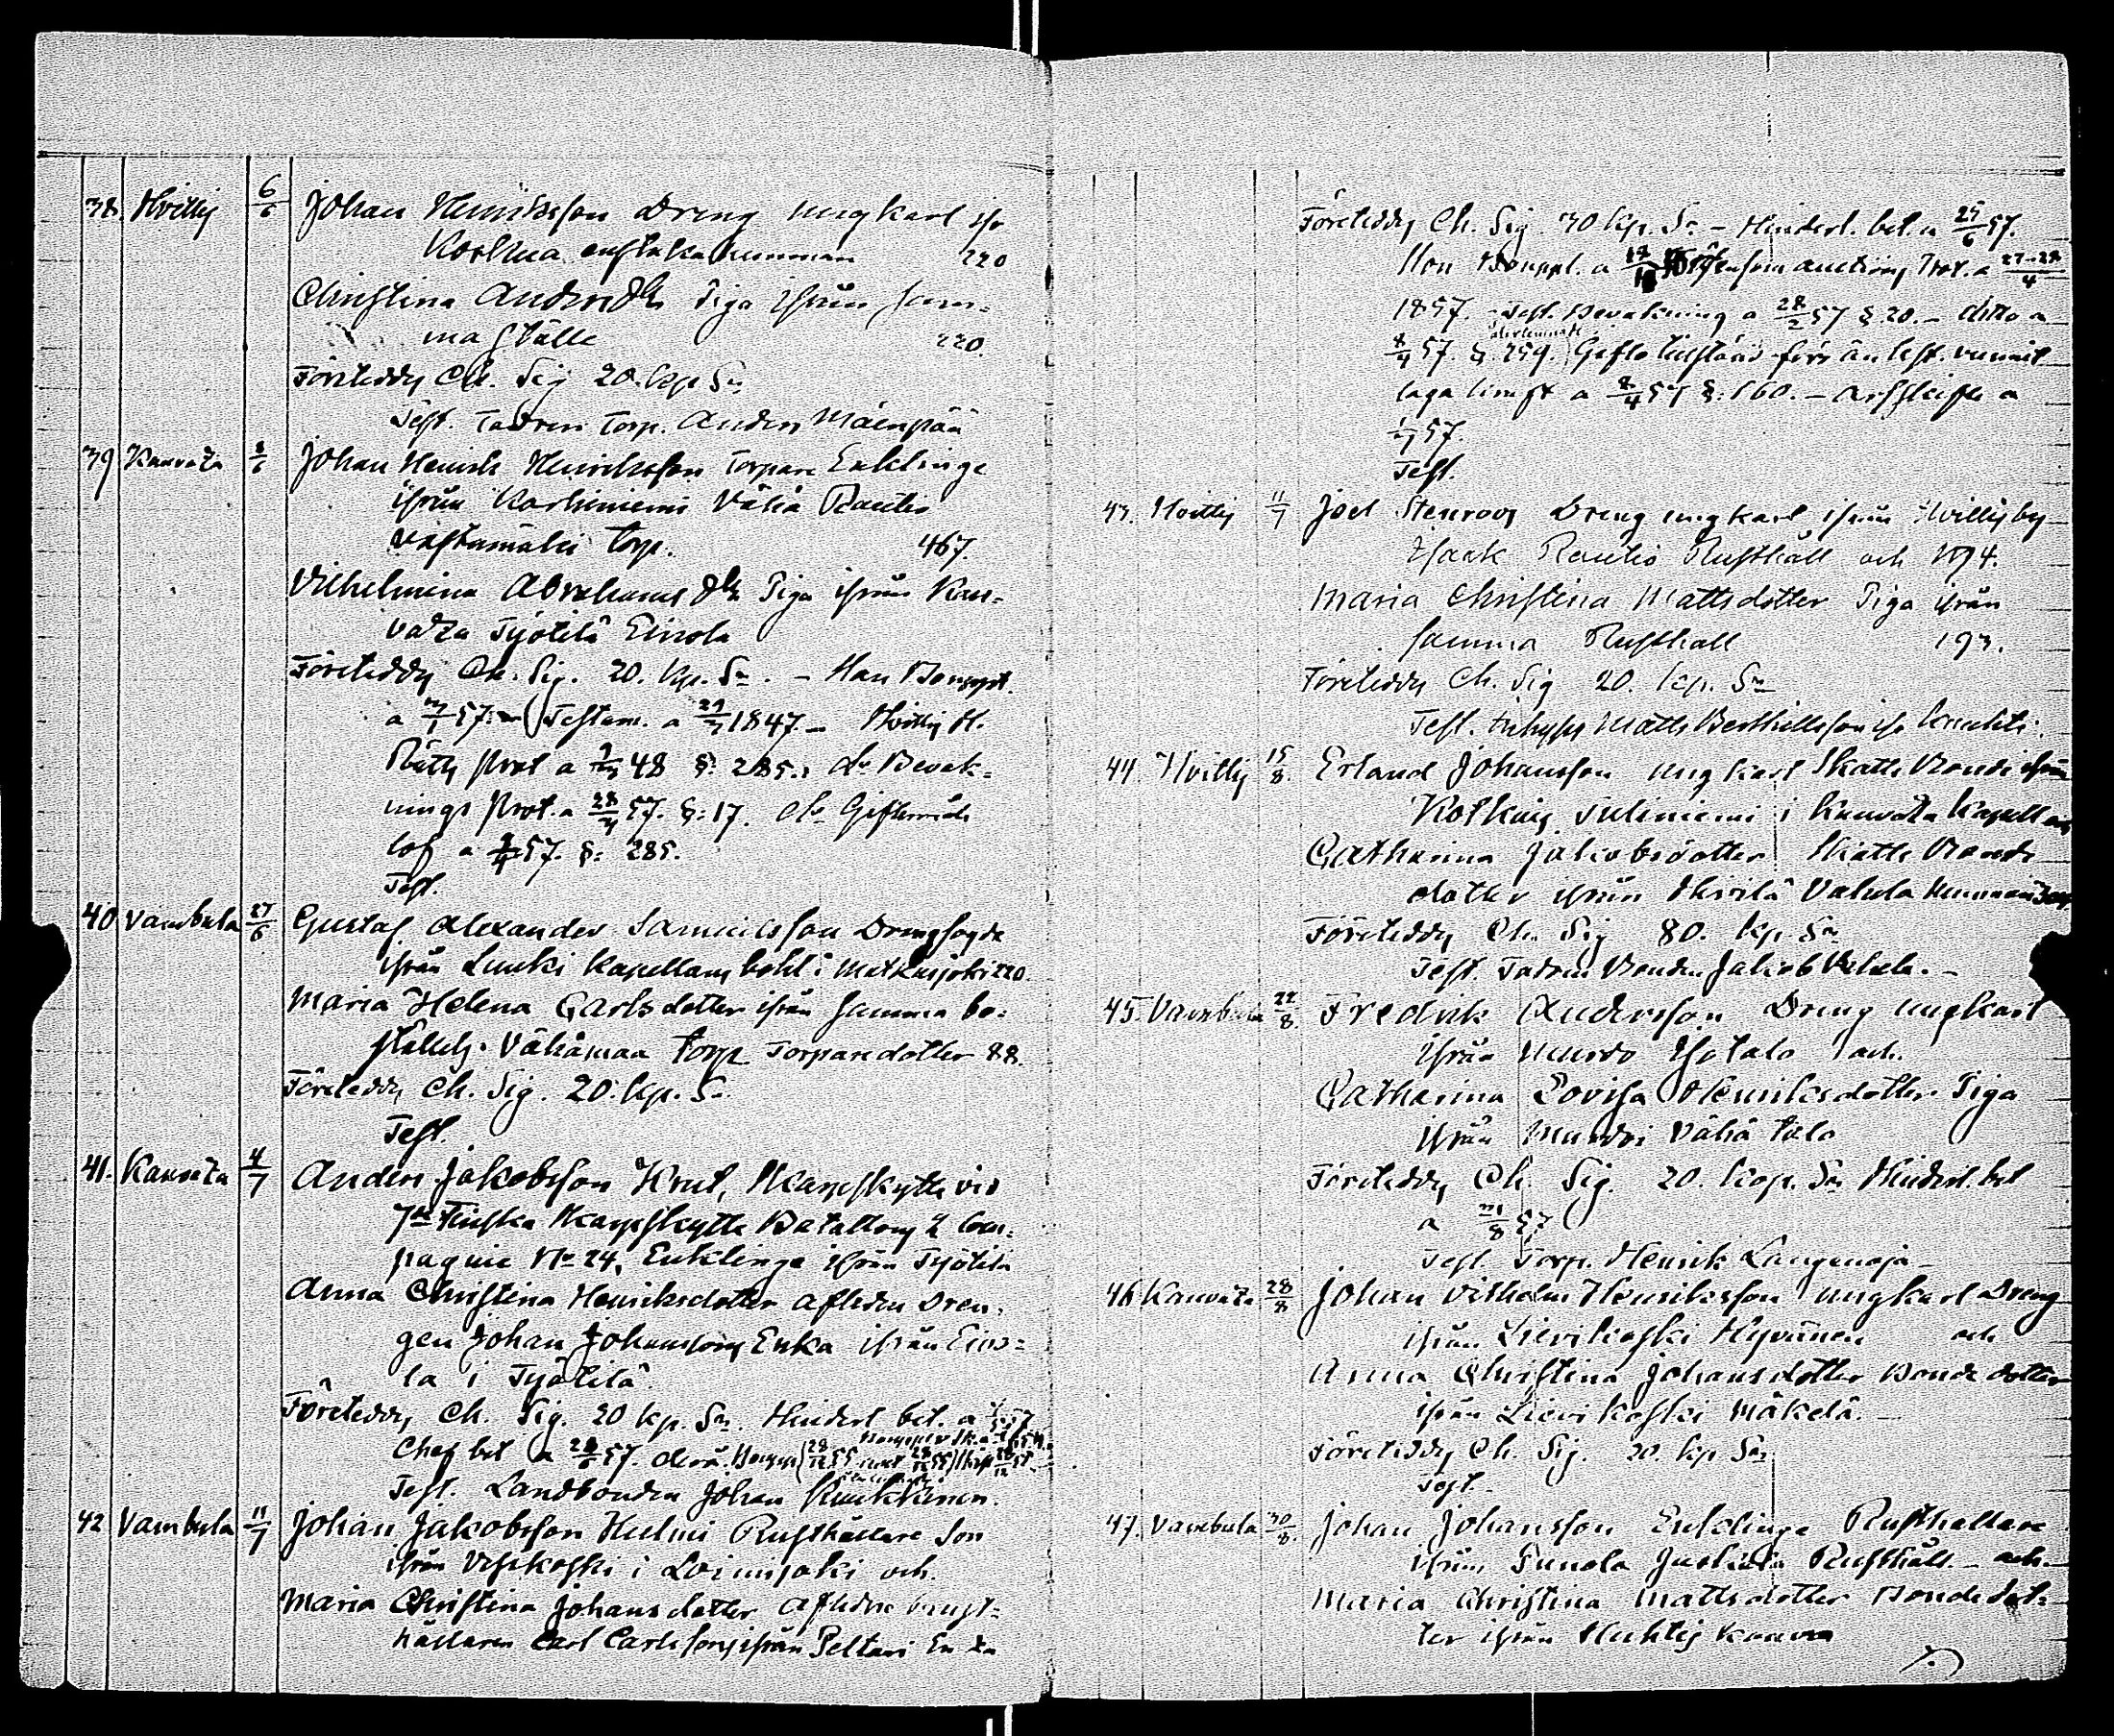 38. Hvittis 6/6 Johan Henriksson Dreng ungkarl ifr
Korkua 220
Christina Andersdtr Piga ifrån sam=
ma ställe 220.
Företeddes Ch. Sig. 20. kop. Sr
Test. Fadren Torp. Anders Mäenpää
39 Kauvatsa Johan Henrik Henriksson Torpare Enklinge
ifrån Karhiniemi Vähä Rautio
torp. 467.
Vilhelmina Abrahams dtr Piga ifrån Kau=
vatsa Yjötilä Einola
Företeddes Ch. Sig. 20. kop. Sr. - Han
a 57. Testam. a 1847. - Hvittis H.
Rätts Prot a 48 §. 285., do Bevak=
nings Prot. a 28/4 57. §. 17. do Giftermåls
lof a 57. §. 285.
Test.
40 Vambula 27/6 Gustaf Alexander Samuelsson Drengfogde
ifrån Kapellans bohl i Matkusjoki 220.
Maria Helena Carlsdotter ifrån samma bo=
ställets Vähämaa torp Torparedotter 88.
Företeddes Ch. Sig. 20. kop. Sr
Test.
41. Kauvatsa 4/7 Anders Jakobsson Krut, Skarpskytte vid
7de Finska Skarpskytte Bataillons 2 Com=
pagnie No 24, Enklinge ifrån Yjötilä
Anna Christina Henriksdotter afledne Dren=
gen Johan Johanssons Enka ifrån Eino=
la i Yjötilä.
Företeddes Ch. Sig. 20 kop. Sr. Hinderl bet. a 57
Chefs bet a 57.
Test. Landbonden Johan
42 Vambula 11/7 Johan Jakobsson Hulmi Rusthållare Son
ifrån Vesikoski i Loimijoki och
Maria Christina Johansdotter afledne Rust=
hållaren Carl Carlssons ifrån Peltari Enka
Företeddes Ch. Sig. 30 kop. Sr - Hinderl. bet. a 57.
Hon a auctions Prot. a 27-28/4
1857. - Test. Bevakning a 28/2 57 §. 20. - ditto a
57. §. 259. Gifto tillstånd förr än test. vunnit
laga kraft a 57 §. 160. - Arfskifte a
57.
Test.
43. Hvittis 11/7 Joel Stenroos Dreng ungkarl ifrån Hvittisby
Isaak Rautio Rusthåll och 194.
Maria Christina Mattsdotter Piga ifrån
samma Rusthåll 193.
Företeddes Ch. Sig 20. kop. Sr
Test. Inhyses Matts Berthillsson ifr
44. Hvittis 15/8. Erland Johansson ungkarl Skatte Bonde ifrån
Kotkuis i Kauvatsa Kapell och
Catharina Jakobsdotter Skatte Bonde
dotter ifrån Skirilä Vahela
Företeddes Ch. Sig 80. kop. Sr
Test. Fadren Bonden Jakob Vahela. -
45. Vambula 22/8. Fredrik Andersson Dreng ungkarl
ifrån Murdo Isotalo och
Catharina Lovisa Henriksdotter Piga
ifrån Murdoi Vähä talo
Företeddes Ch. Sig. 20. kop. Sr Hinderl. bet
a 57
Test. Torp. Henrik Langenoja -
46 Kauvatsa 28/8 Johan Vilhelm Henriksson ungkarl Dreng
ifrån Lievikoski Hyvänen och
Anna Christina Johansdotter Bondedotter
ifrån Lievikoski Mäkelä. -
Företeddes Ch. Sig. 20. kop Sr
Test.
47. Vambula 30/8. Johan Johansson Enklinge Rusthållare
ifrån Sunola Rusthåll - och
Maria Christina Mattsdotter Bondedot=
ter ifrån Huhtis